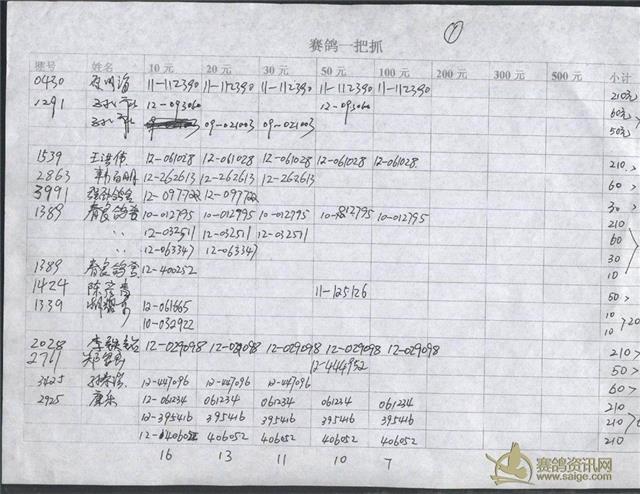 ①
赛鸽一把抓
棚号 姓名 10元 20元 30元 50元 100元 200元 300元 500元 小计
0430 11-112390 11-112390 11-112390 11-112390 11-112390 210元
1291 12-093060 12-093060 60元
09-021003 09-021003 50元
1539 王洪伟 12-061028 12-061028 12-061028 12-061028 12-061028 210
2863 12-262613 12-262613 12-262613 60
3991 12-097722 12-097722 30
1389 10-012795 10-012995 10-012795 10-012795 10-012795 210
〃 12-032511 12-032511 12-032511 60
〃 12-063347 12-063347 30
1389 12-400252 10
1424 11-125126 50
1339 12-061665 10
10-032922 10 20
2028 12-029098 12-029098 12-029098 12-029098 12-029098 210
2761 12-444952 50
3425 12-447096 12-447096 12-447096 60
2925 12-061234 061234 061234 061234 061234 210
12-395416 395416 395416 395416 395416 210
12-406052 406052 406052 406052 406052 210
16 13 11 10 7
赛鸽资讯网
www.saige.com